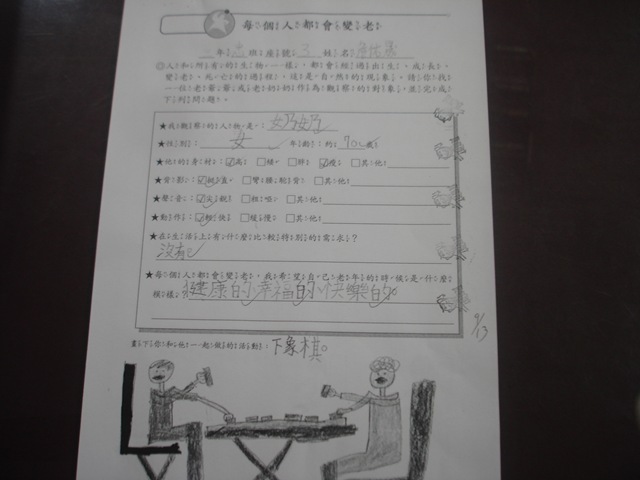 每個人都會變老
一年 班座號 3 姓名
◎人和所有的生物一樣，都會經過出生、成長、
變老、死亡的過程，這是自然的現象。請你找
一位老爺爺或老奶奶的作為觀察的對象，並完成
下列問題。
★我觀察的人物是：奶奶
★性別：女 年齡：約70歲
★他的身材：☑高 □矮 □胖 ☑瘦 □其他
★背影：☑挺直 □彎腰駝背 □其他
★聲音：☑尖銳 □粗啞 □其他
★動作：☑輕快 □緩慢 □其他
★在生活上有什麼比較特別的需求？
沒有。
★每個人都會變老，我希望自己老年的時候是什麼
模樣？健康的幸福的快樂的。
9/13
畫下你和他一起做的活動：下象棋。